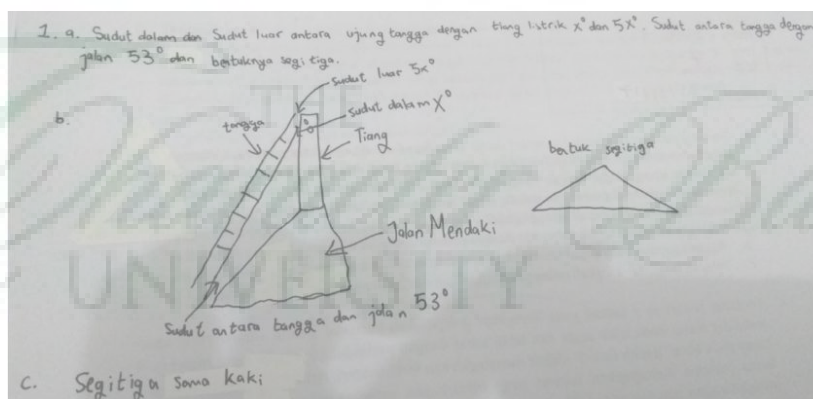 1. a. Sudut dalam dan Sudut luar antara ujung tangga dengan tiang listrik x° dan 5x°. Sudut antara tangga dengan
jalan 53° dan bentuknya segi tiga.
b.
sudut luar 5x°
sudut dalam x°
tangga
Tiang
bentuk segitiga
Jalan Mendaki
Sudut antara tangga dan jalan 53°
c. Segitiga sama kaki
THE
Character Bu
UNIVERSITY